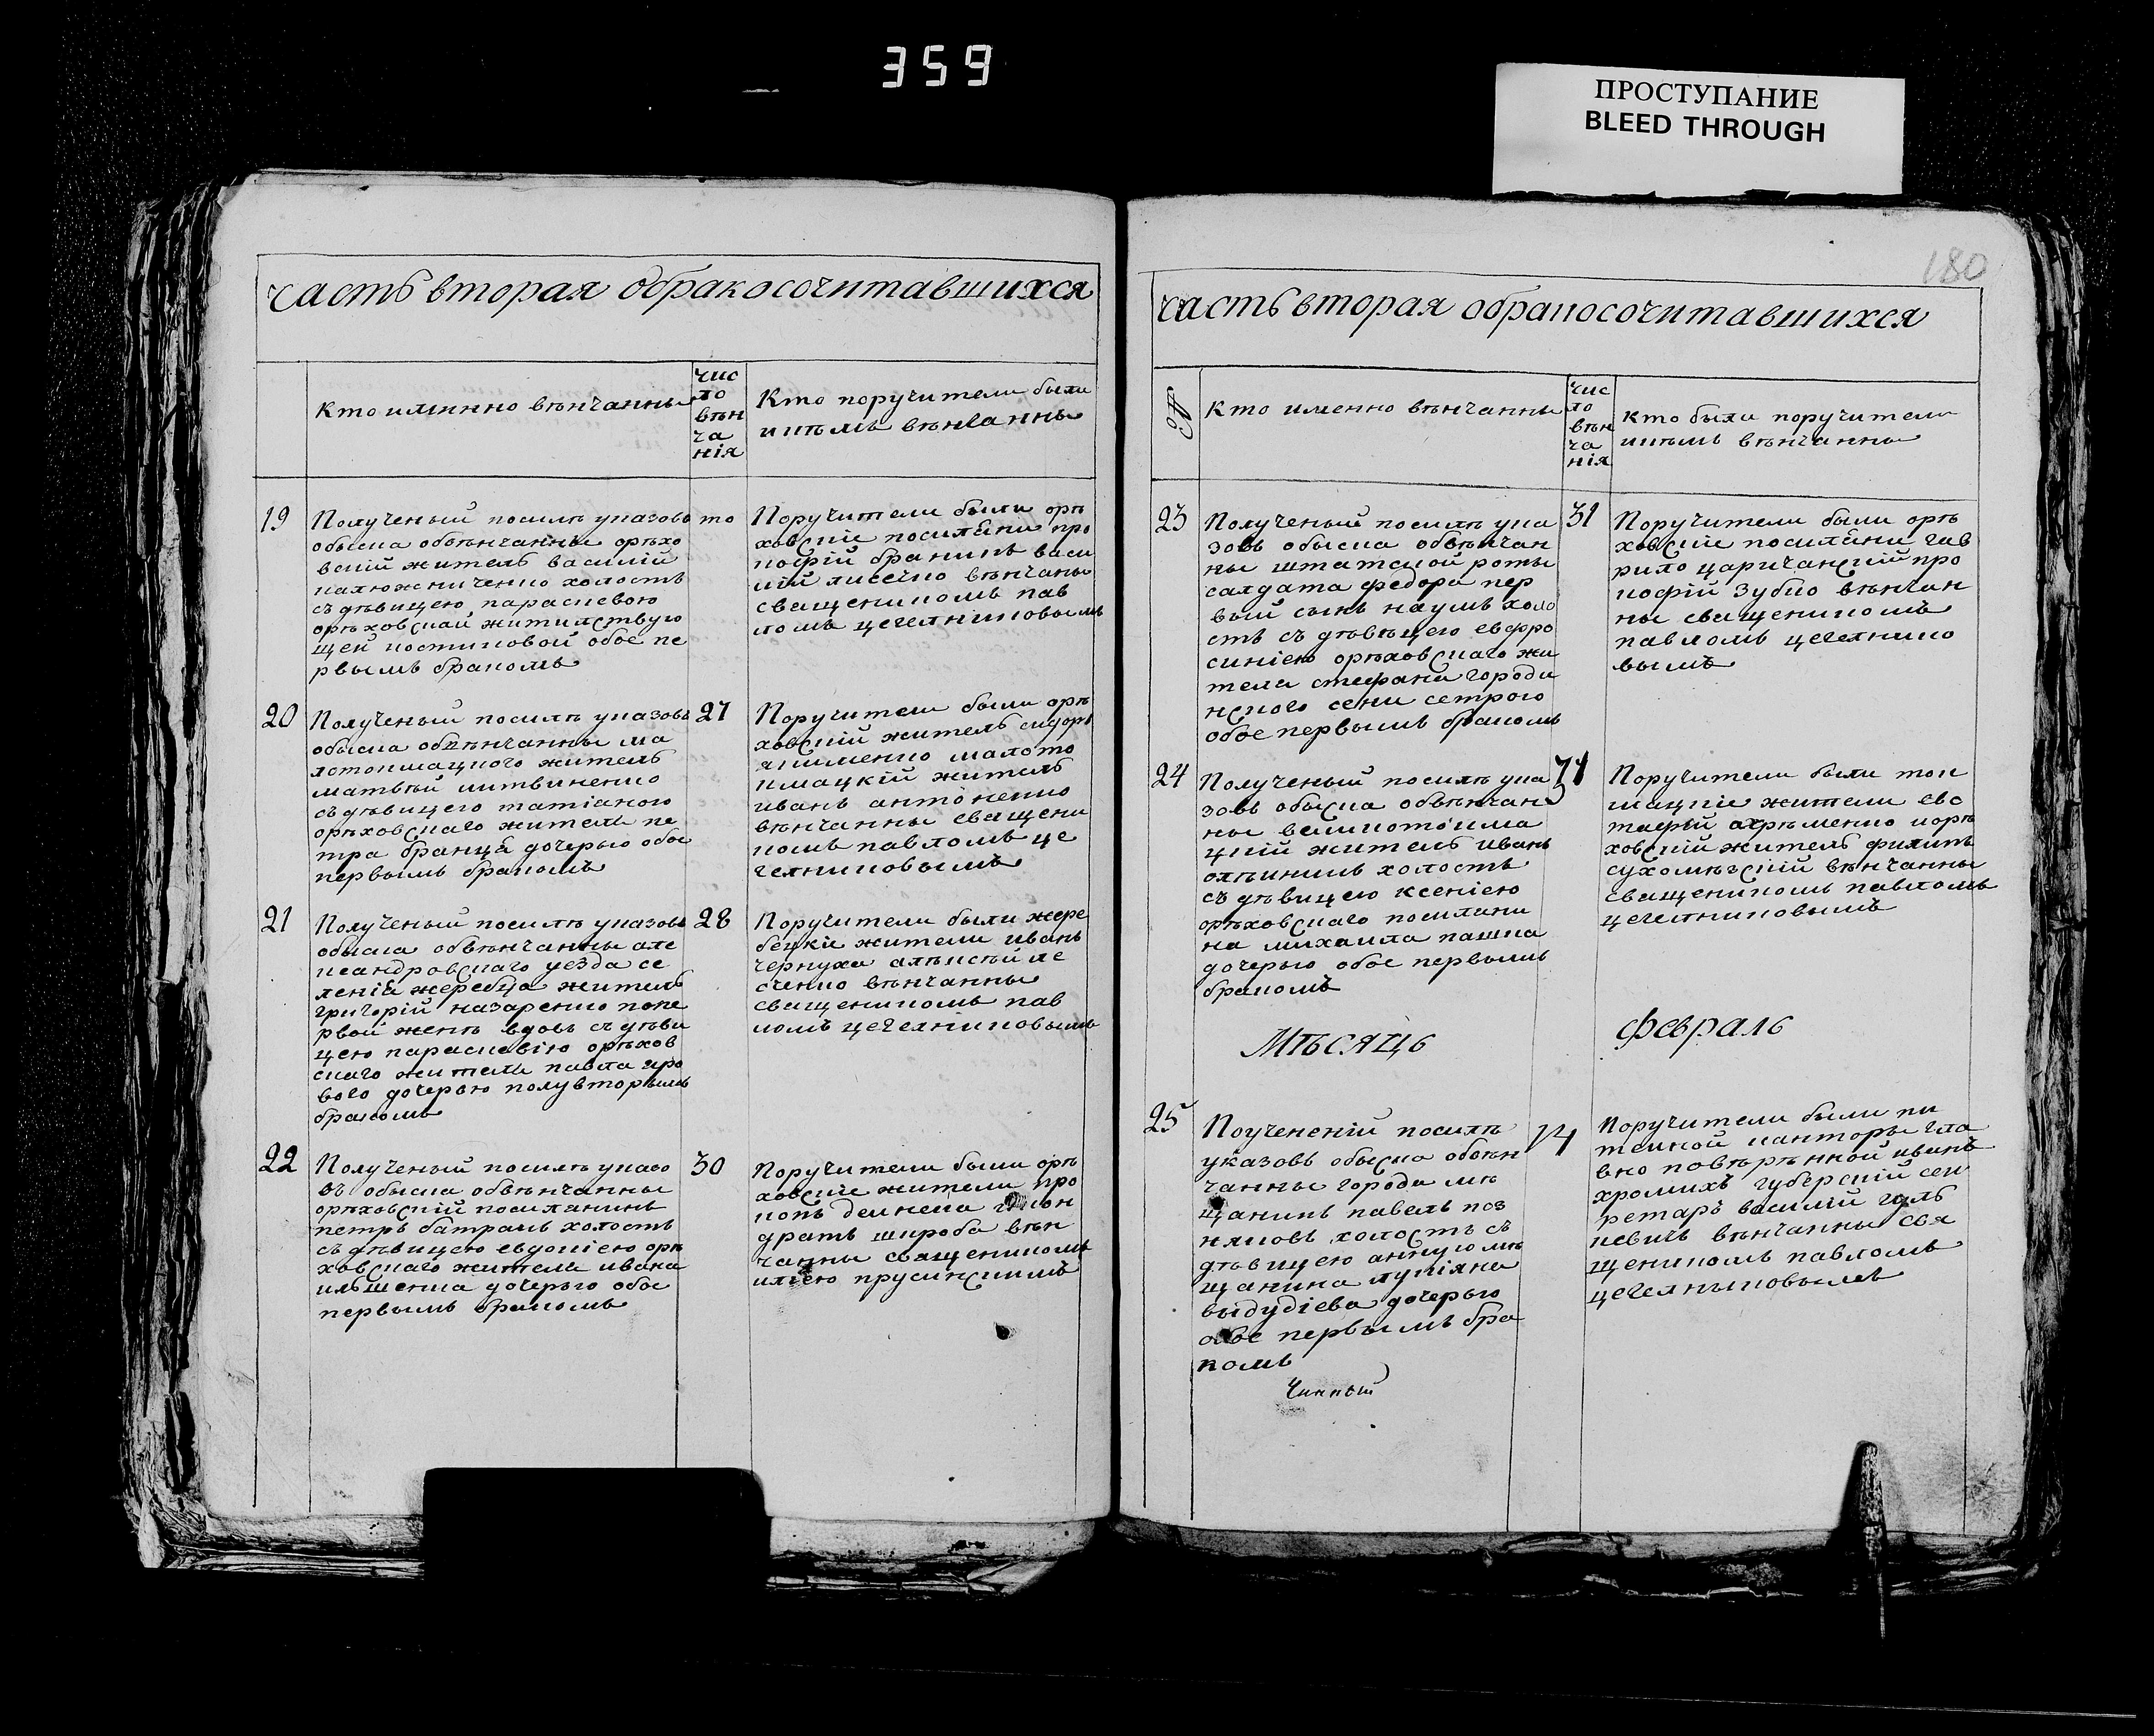 359
ПРОСТУПАНИЕ
BLEED THROUGH
180
часть вторая обракосочитавшихся
Кто имянно вѣнчанны
чис
ло
вѣн
ча
нія
Кто поручители были
икѣмъ вѣнчанны
19
Полученый посилѣ указовъ
обыска обвѣнчанны орѣхо
вскій житель василій
холостъ
съ дѣвицею параскевою
орѣховскай житилствую
щей костиковой обое пе
рвымъ бракомъ
то
Поручители были орѣ
ховскіе посиляни про
кофій браникъ васи
лій лисечко вѣнчаны
свещеникомъ пав
ломъ цегелниковымъ
20
Полученый посилѣ указовъ
обыска обвѣнчанны ма
лотокмацкого житель
матвѣй литвиненко
съ дѣвицего татіаною
орѣховскаго жителя пе
тра бранца дочерью обое
первымъ бракомъ
27
Поручители были орѣ
ховскій житель сидоръ
якименко малото
кмацкій житель
иванъ антоненко
вѣнчанны свещени
комъ павломъ це
гелниковымъ
21
Полученый посилѣ указовъ
обыска обвѣнчанны але
ксандровскаго уезда се
ленія жеребца житель
григорій назаренко попе
рвой женѣ вдовъ съ дѣви
цею параскевію орѣхов
скаго жителя павла
вого дочерью полувторымъ
бракомъ
28
Поручители были жере
бецкіе жители иванъ
чернуха алѣксѣй ле
сченко вѣнчанны
свещеникомъ пав
ломъ цегелниковымъ
22
Полученый посилѣ указо
въ обыска обвѣнчанны
орѣховскій посилянинъ
петръ батракъ холостъ
съ дѣвицею евдокіею орѣ
ховскаго жителя ивана
илѣшенка дочерью обое
первымъ бракомъ
30
Поручители были орѣ
ховскіе жители про
копъ деинека кон
дратъ широба вѣн
чанны свещеникомъ
иліею прусинскимъ
часть вторая обракосочитавшихся
№
Кто именно вѣнчанны
чис
ло
вѣн
ча
нія
Кто были поручители
икѣмъ вѣнчанны
23
Полученый посилѣ ука
зовъ обыска обвѣнчан
ны штатской роты
салдата федора пер
вый сынъ наумъ холо
стъ съ дѣвицею евфро
синіею орѣховскаго жи
теля стефана городи
нского сени сетрого
обое первымъ бракомъ
31
Поручители были орѣ
ховскіе посиляни гав
рило царичанскій про
кофій зубко вѣнчан
ны свещеникомъ
павломъ цегелнико
вымъ
24
Полученый посилѣ ука
зовъ обыска обвѣнчан
ны великотокма
цкій житель иванъ
олѣиникъ холостъ
съ дѣвицею ксеніею
орѣховскаго посиляни
на михаила пашка
дочерью обое первымъ
бракомъ
31
Поручители были ток
мацкіе жители евс
тафій ахрѣменко иорѣ
ховскій житель филипъ
сухомлѣскій вѣнчанны
свещеникомъ павломъ
цегелниковымъ
Мѣсяцъ
февраль
25
Поученій посилѣ
указовъ обыска обвѣн
чанны города мѣ
щанинъ павелъ поз
няковъ холостъ съ
дѣвицею анною мѣ
щанина лукіяна
выдудіева дочерью
обое первымъ бра
комъ
14
Поручители были пи
тейной канторы гла
вно повѣрѣнной иванъ
хромихъ губерскій сек
ретаръ василій голь
кевичъ вѣнчанны свя
щеникомъ павломъ
цегелныковымъ